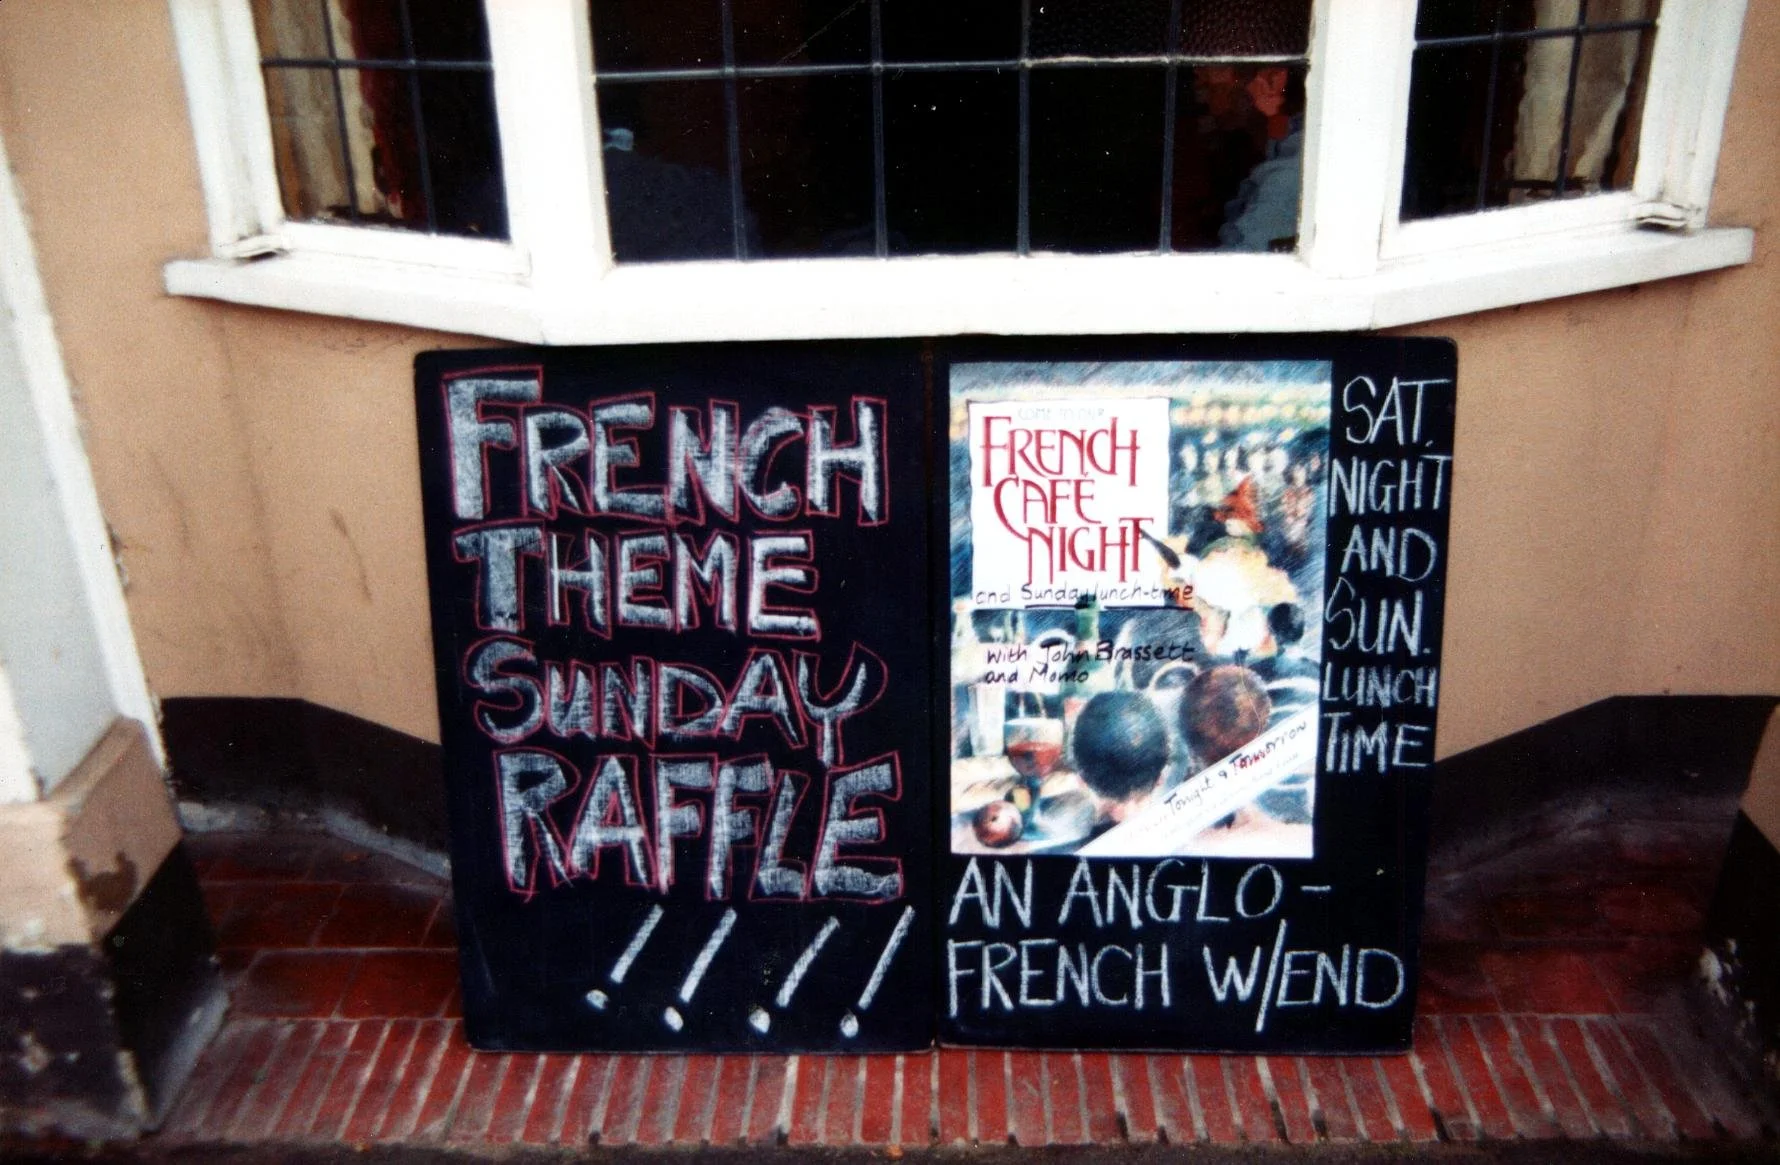 FRENCH
THEME
SUNDAY
RAFFLE
!!!!
COME TO OUR
FRENCH
CAFÉ
NIGHT
and Sunday lunch-time
with John Brassett
and Momo
Tonight & Tomorrow
SAT.
NIGHT
AND
SUN.
LUNCH
TIME
AN ANGLO-
FRENCH W/END